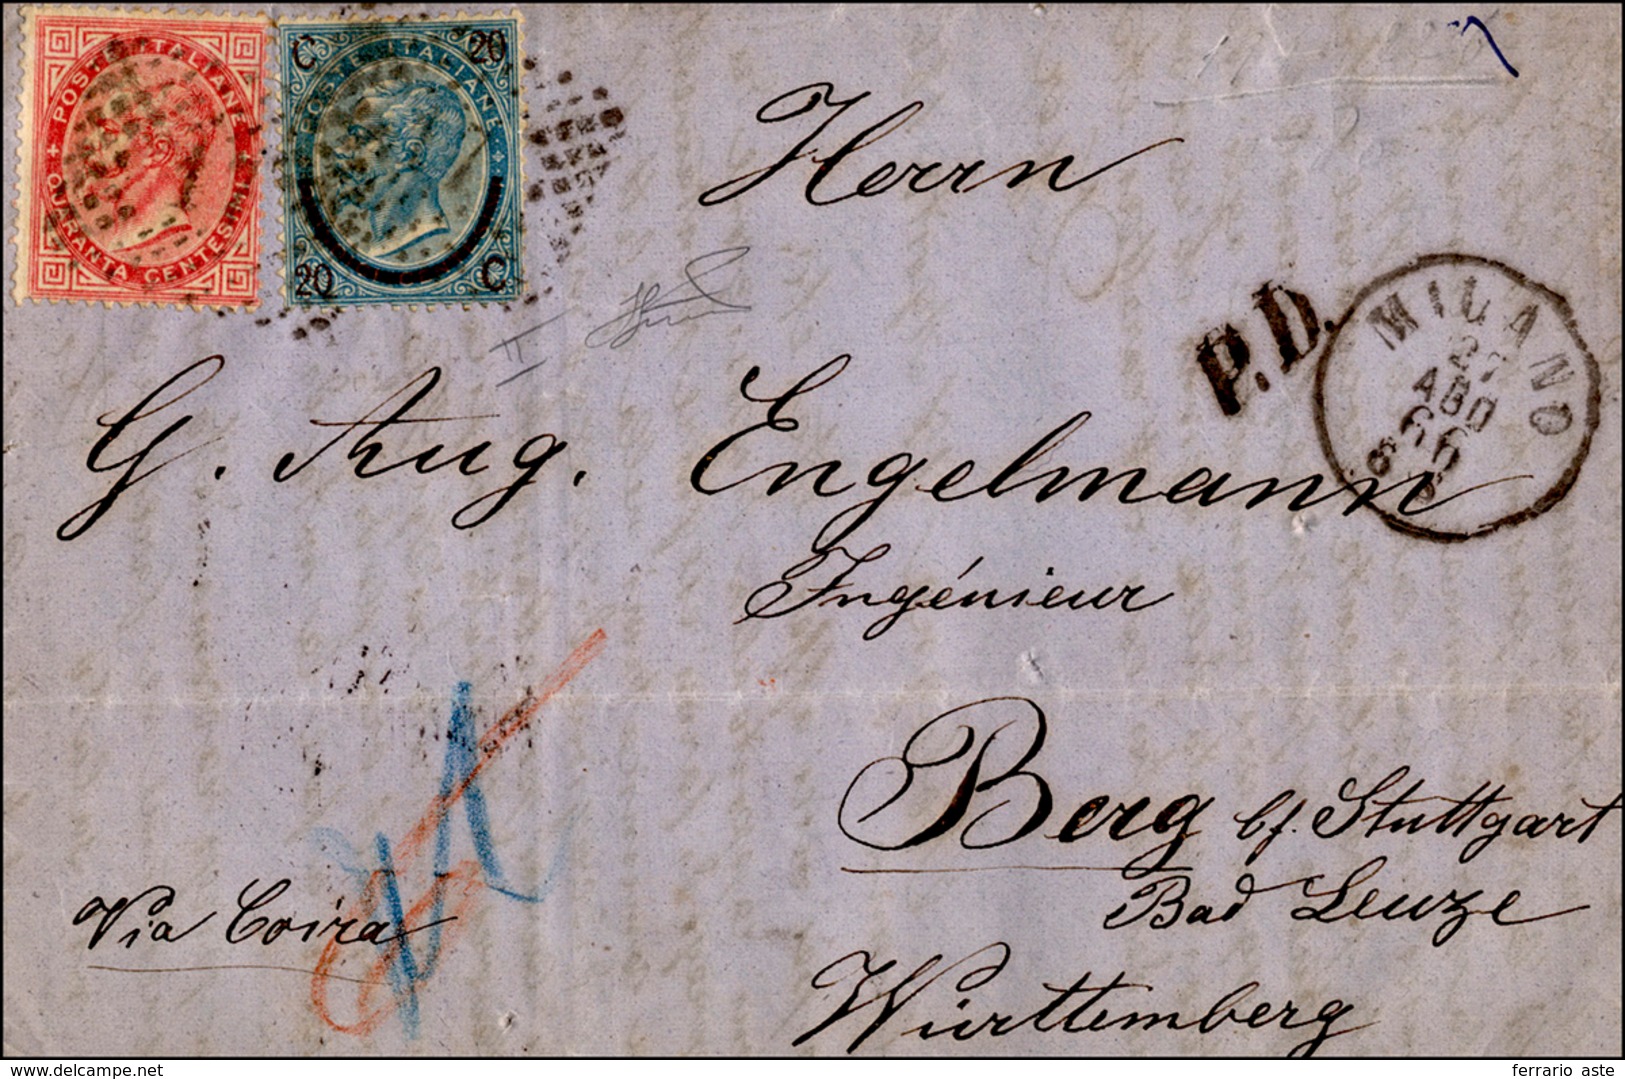 POSTE ITALIANE
QUARANTA CENTESIMI
C 20
POSTE ITALIANE
20 C
II
Herrn
P.D.
MILANO
27
AGO
66
G. Aug. Engelmann
Ingénieur
Berg b/. Stuttgart
Bad Leuze
Via Coira
Württemberg
delcampe.net
ferrario aste